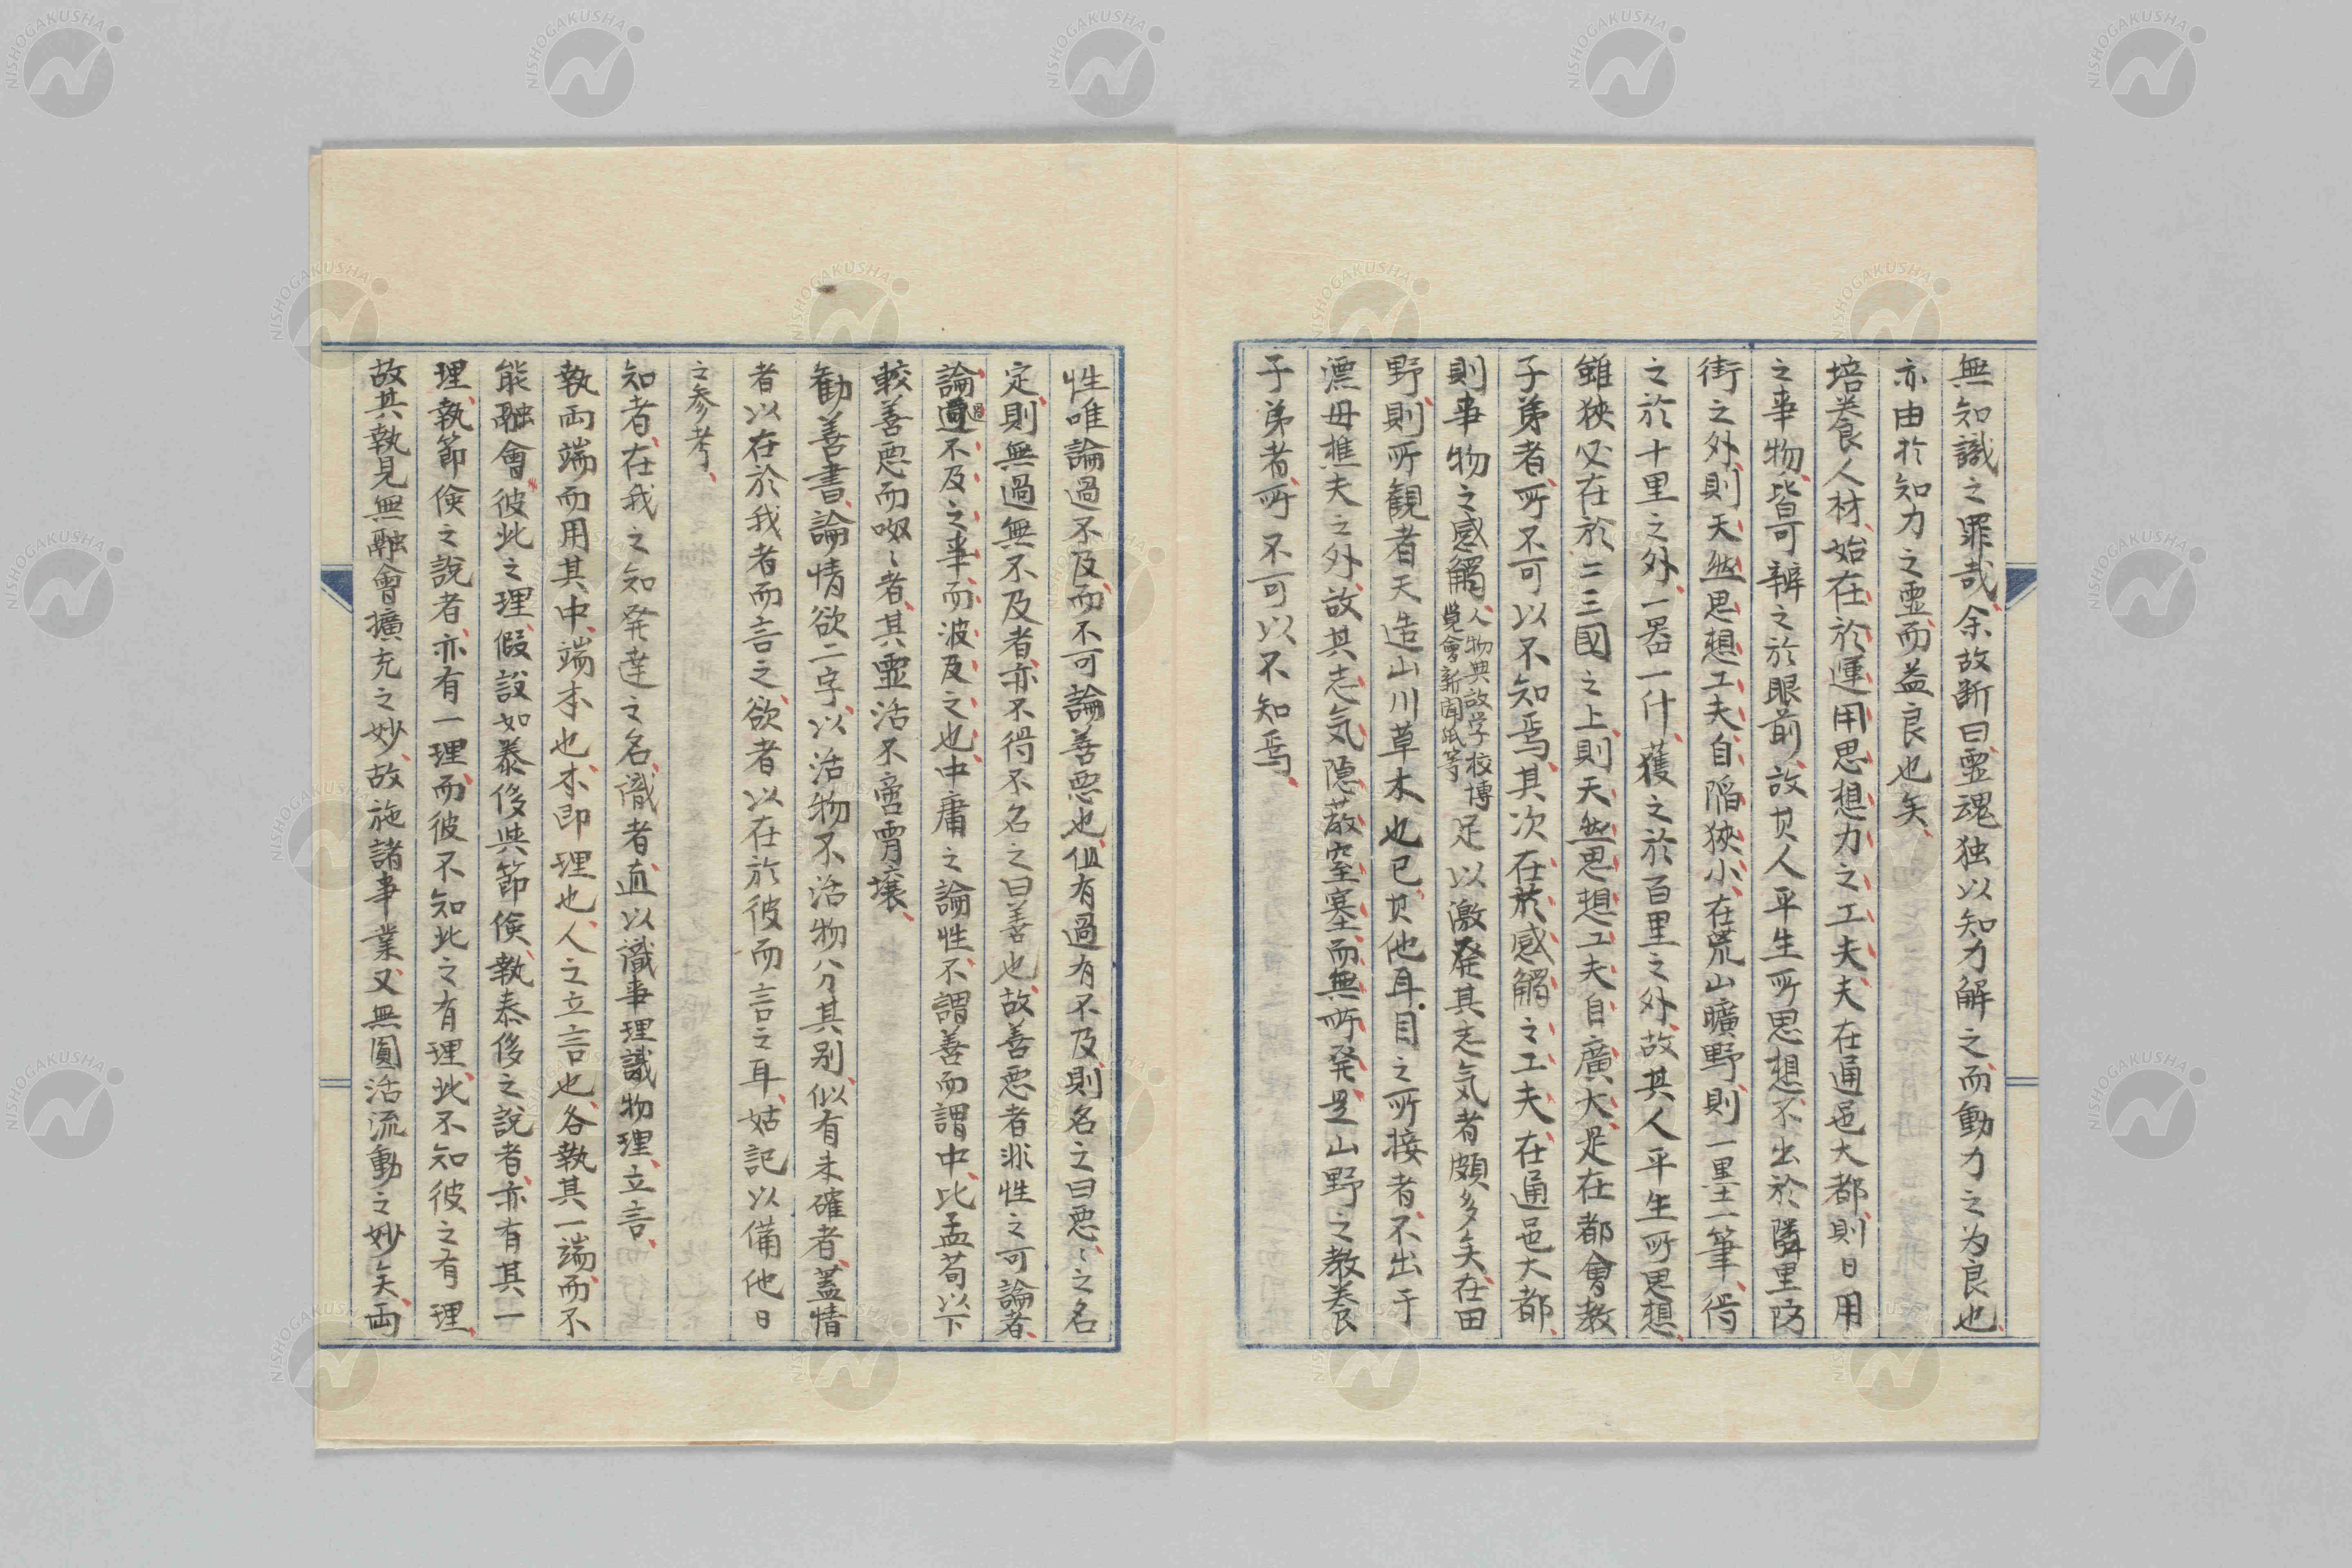 無知識之罪哉、余故断曰、霊魂独以知力解之、而動力之為良也、
亦由於知力之霊而益良也矣、
培養人材、始在於運用思想力之工夫、夫在通邑大都、則日用
之事物、皆可辨之於眼前、故其人平生所思想、不出於隣里防
街之外、則天然思想工夫、自陥狭小、在荒山曠野、則一墨一筆、得
之於十里之外、一畚一什、獲之於百里之外、故其人平生所思想、
雖狭必在於二三國之上、則天然思想工夫自廣大、是在都會教
子弟者、所不可以不知焉、其次在於感觸之工夫、在通邑大都、
則事物之感觸人物典故学校博覧會新聞紙等足以激発其志気者頗多矣、在田
野、則所観者天造山川草木也已、其他耳目之所接者、不出于
漂母樵夫之外、故其志気隠蔽窒塞、而無所発、是山野之教養
子弟者、所不可以不知焉、
性唯論過不及、而不可論善悪也、但有過有不及、則名之曰悪、々之名
定、則無過無不及者、亦不得不名之曰善也、故善悪者非性之可論者、
論過不及之事、而波及之也、中庸之論性、不謂善而謂中、比孟荀以下
較善悪而呶々者、其霊活不啻霄壌、
勧善書、論情欲二字、以活物不活物分其別、似有未確者、蓋情
者以在於我者而言之、欲者以在於彼而言之耳、姑記以備他日
之参考、
知者、在我之知発達之名、識者、直以識事理識物理、立言、
執両端而用其中、端本也、本即理也、人之立言也、各執其一端、而不
能融會彼此之理、假設如泰侈與節倹、執泰侈之説者、亦有其一
理、執節倹之説者、亦有一理、而彼不知此之有理、此不知彼之有理、
故其執見無融會擴充之妙、故施諸事業、又無圓活流動之妙矣、両